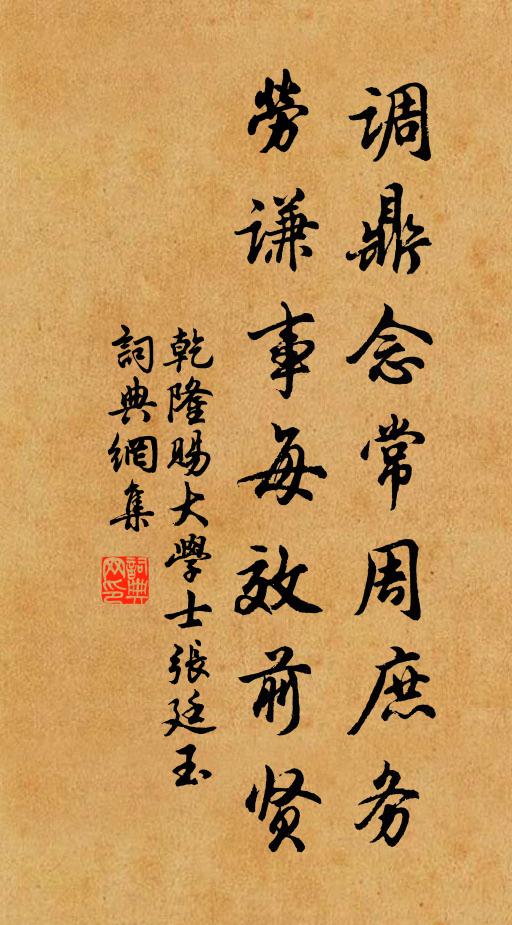 调鼎念常周庶务
劳谦事每效前贤
乾隆賜大學士張廷玉
詞典網集
詞典网印